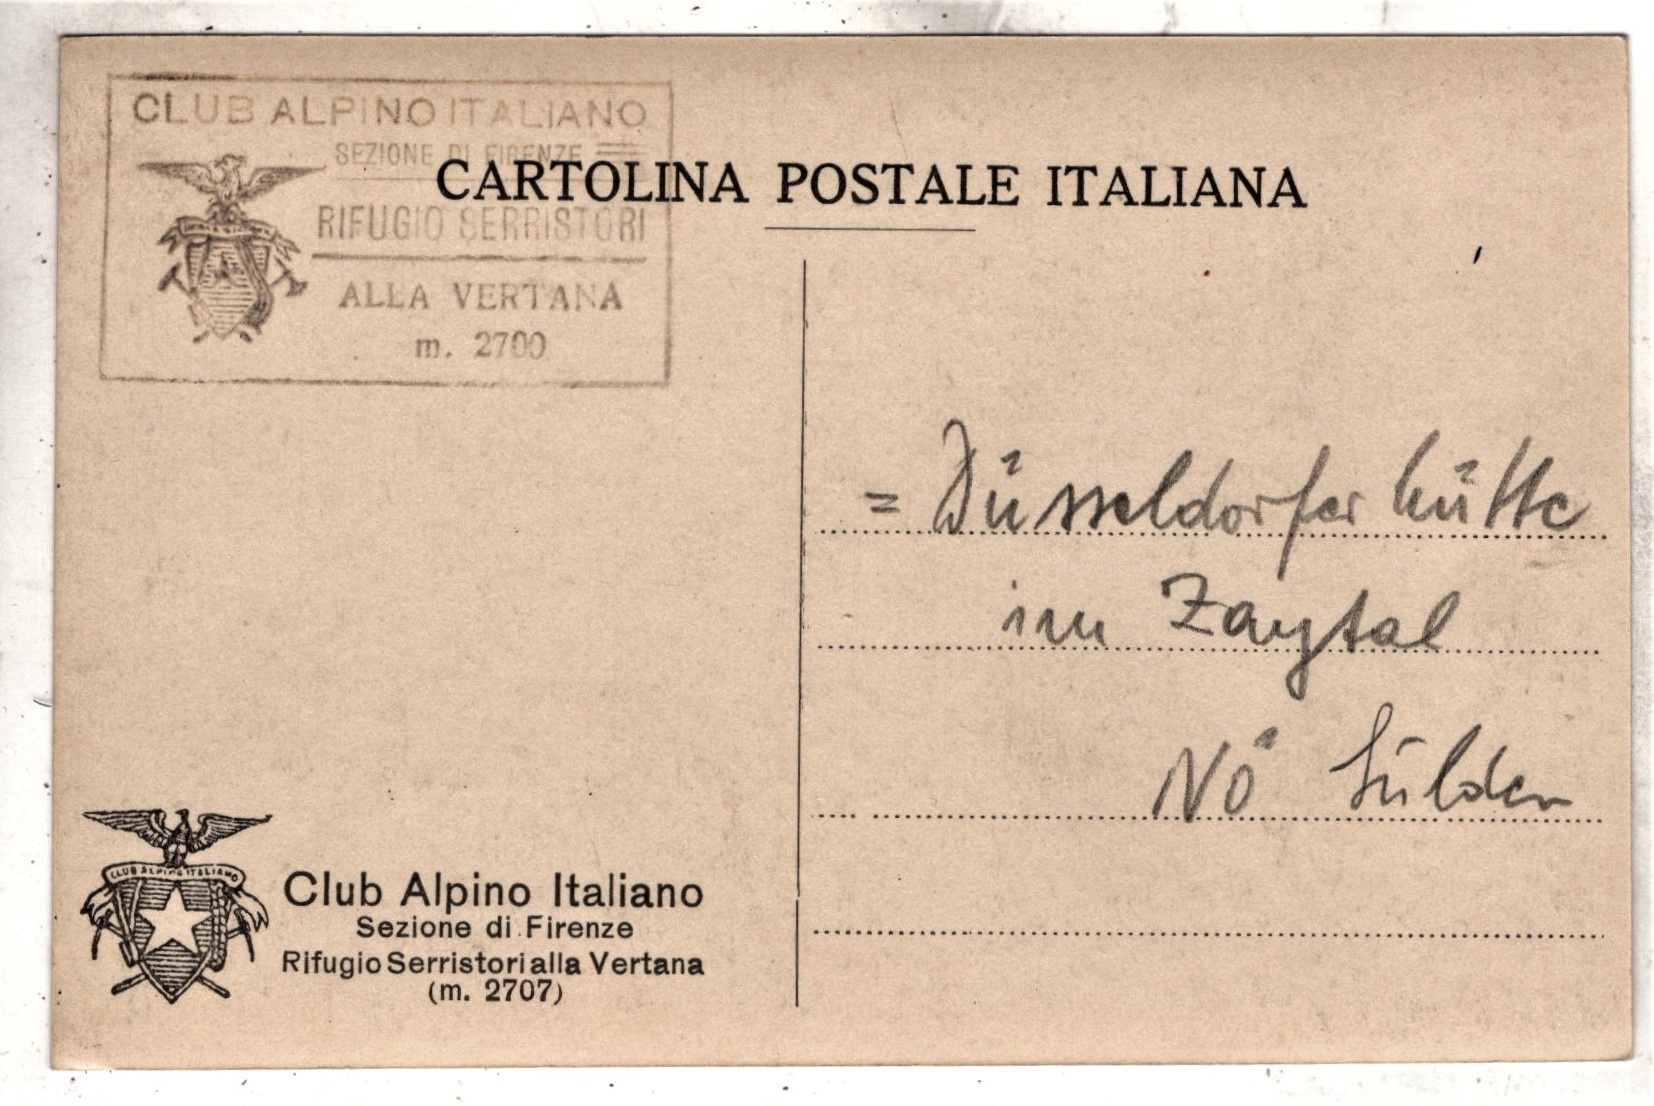 CLUB ALPINO ITALIANO
SEZIONE DI FIRENZE
RIFUGIO SERRISTORI
ALLA VERTANA
m. 2700
CARTOLINA POSTALE ITALIANA
= Düsseldorfer hütte
im Zaytal
NÖ Sülden
CLUB ALPINO ITALIANO
Club Alpino Italiano
Sezione di Firenze
Rifugio Serristori alla Vertana
(m. 2707)